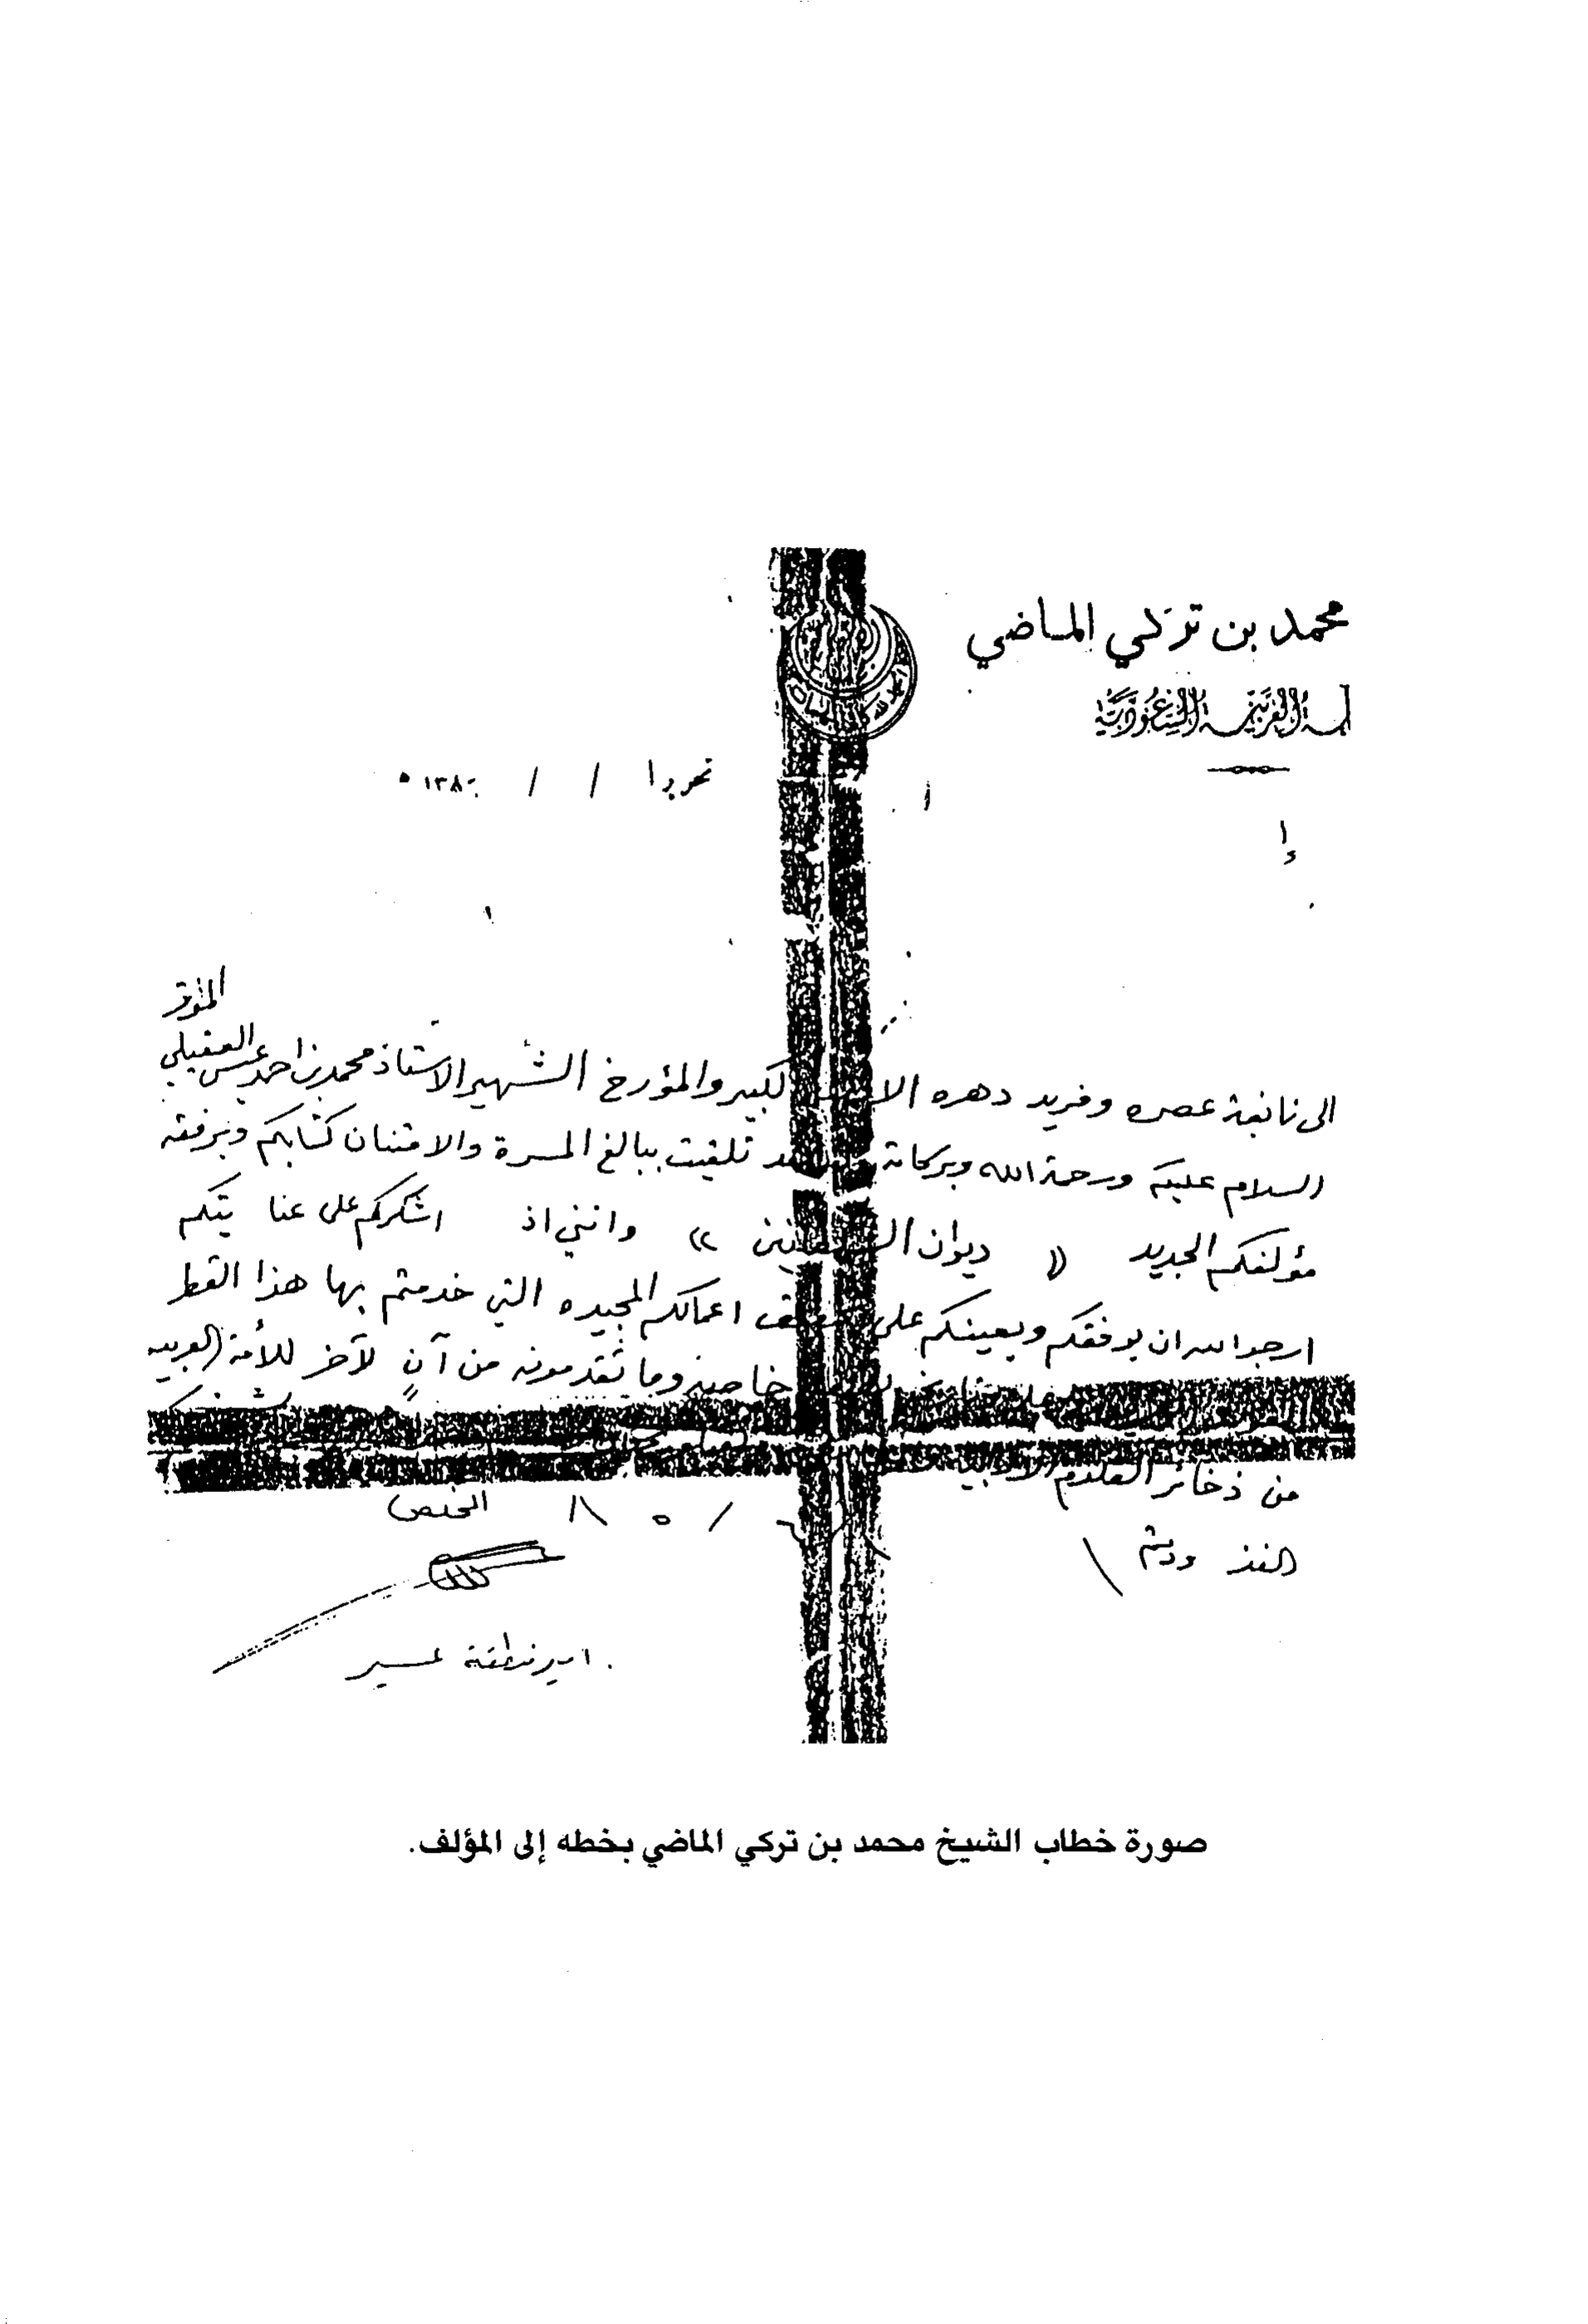 محمد بن تركي الماضي
العربية السعودية
تحريرا / / ١٣٨٠ ه
الموقر
الى نابغة عصره وفريد دهره الكبير والمؤرخ الشهير الاستاذ محمد بن احمد عيسى العقيلي
السلام عليكم ورحمة الله وبركاته تلقيت ببالغ المسرة والامتنان كتابكم وبرفقه
مؤلفكم الجديد « ديوان » وانني اذ اشكركم على عنايتكم
ارجو الله ان يوفقكم ويعينكم على اعمالكم المجيده التي خدمتم بها هذا القطر
خاصة وما تقدمونه من آنٍ لآخر للأمة العربيه
من ذخائر العلوم
الفذ ودمتم
المخلص
امير منطقة عسير
صورة خطاب الشيخ محمد بن تركي الماضي بخطه إلى المؤلف.